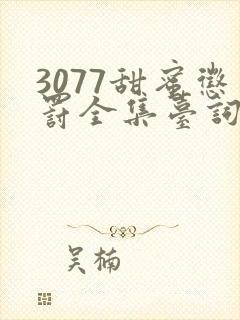 3077甜蜜懲
罸全集臺詞
吴楠